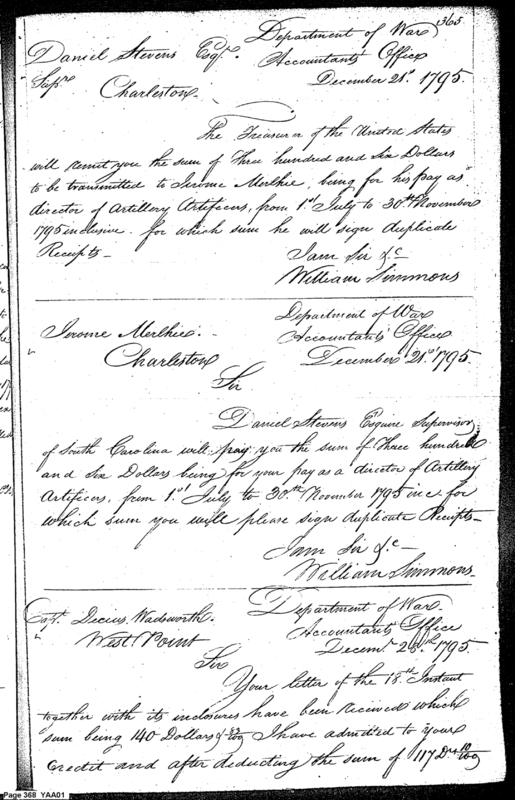 365
Department of War
Daniel Stevens Esqr. Accountants Office
Supr. December 21st. 1795.
Charleston
The Treasurer of the United States
will remit you the sum of Three hundred and Six Dollars
to be transmitted to Jerome Merlhie, being for his pay as
director of Artillery Artificers, from 1st July to 30th November
1795 inclusive. for which sum he will sign duplicate
Receipts
I am Sir &c
William Simmons
Department of War
Jerome Merlhie. Accountants Office
Charleston December 21st. 1795.
Sir
Daniel Stevens Esquire Supervisor
of South Carolina will pay you the sum of Three hundred
and Six Dollars being for your pay as a director of Artillery
Artificers, from 1st. July to 30th November 1795 inc. for
which sum you will please sign duplicate Receipts
I am Sir &c
William Simmons.
Department of War
Capt. Decius Wadsworth. Accountants Office
West Point Decemr 1795
Sir
Your letter of the 18th Instant
together with its enclosures have been received which
sum being 140 Dollars I have admitted to your
credit and after deducting the sum of 117 Drs
Page 368 YAA01